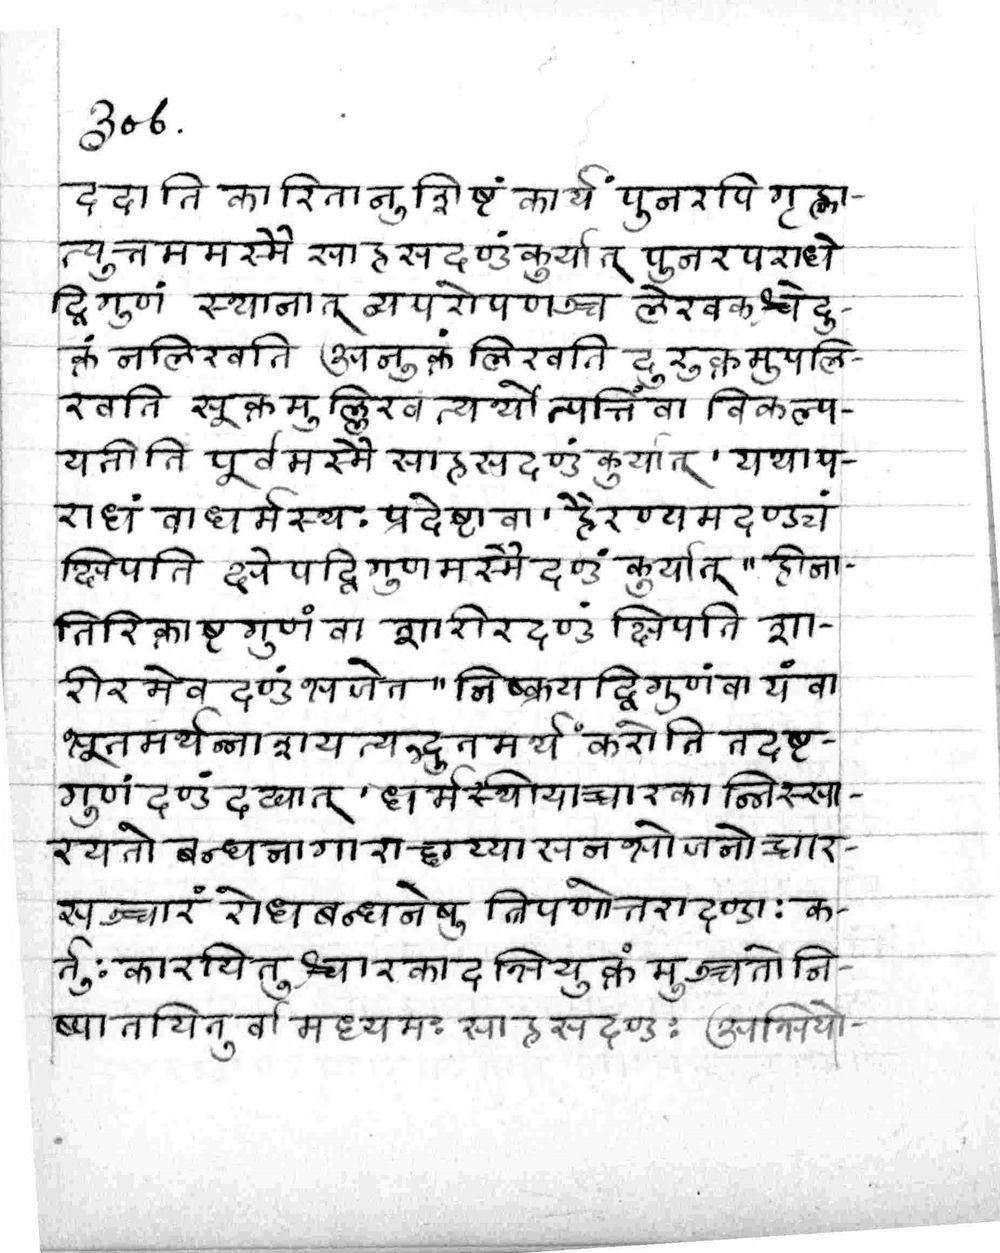 ३०६.
ददाति कारितानुशिष्टं कार्यं पुनरपि गृह्णा-
त्युत्तममस्मै साहसदण्डंकुर्यात् पुनरपराधे
द्विगुणं स्थानात् व्यपरोपणञ्च लेखकश्चेदु-
क्तं नलिखति अनुक्तं लिखति दुरुक्तमुपलि-
खति सूक्तमुल्लिखत्यर्थोत्पत्तिंवा विकल्प-
यतीति पूर्वमस्मै साहसदण्डं कुर्यात् ' यथाप-
राधं वाधर्मस्थः प्रदेष्टावा ' हैरण्यमदण्ड्यं
क्षिपति क्षेपद्विगुणमस्मैदण्डं कुर्यात् " हीना-
तिरिक्ताष्टगुणंवा शारीरदण्डं क्षिपति शा-
रीरमेव दण्डंभजेत " निष्क्रयद्विगुणंवा यंवा
भूतमर्थन्नाशयत्यभूतमर्थं करोति तदष्ट-
गुणंदण्डंदद्यात् ' धर्मस्थीयाच्चारकान्निस्सा-
रयतो बन्धनागाराच्छय्यासनभोजनोच्चार-
सञ्चारं रोधबन्धनेषु त्रिपणोत्तरादण्डाः क-
र्तुः कारयितुश्चारकादभियुक्तं मुञ्चतोनि-
ष्पातयितुर्वामध्यमः साहसदण्डः अभियो-